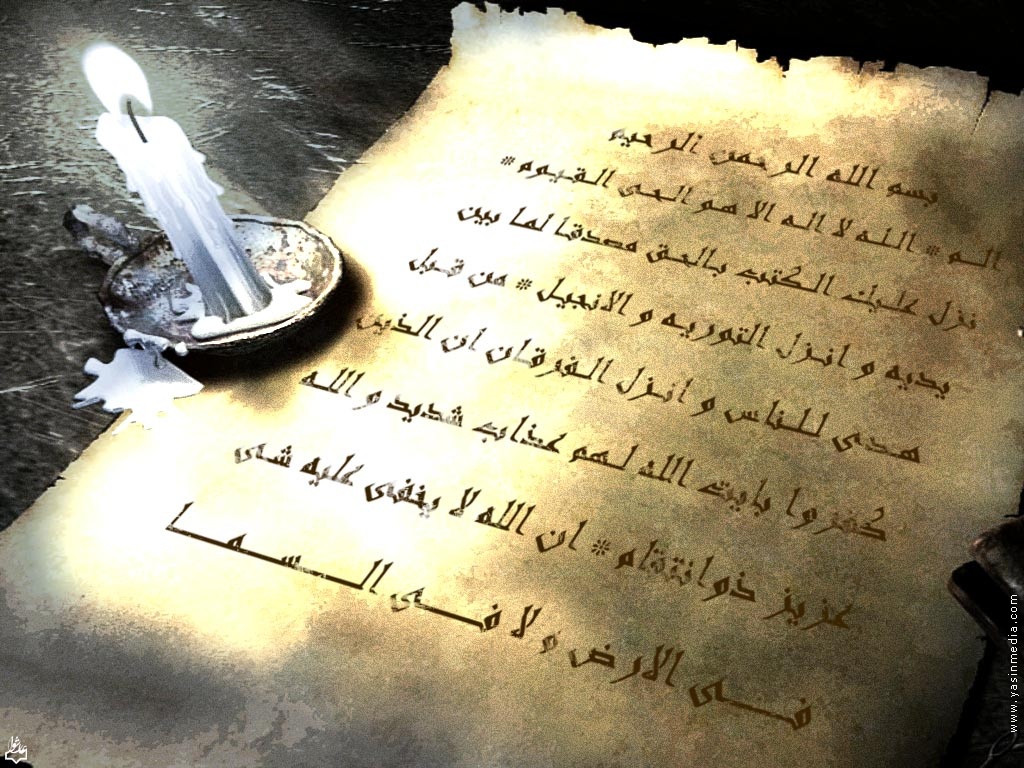 بسم الله الرحمن الرحيم
الم * الله لا اله الا هو الحى القيوم *
نزل عليك الكتب بالحق مصدقا لما بين
يديه و انزل التوريه و الانجيل * من قبل
هدى للناس و انزل الفرقان ان الذين
كفروا بايت الله لهم عذاب شديد و الله
عزيز ذوانتقام * ان الله لا يخفى عليه شى
فى الارض و لا فى السما
www.yasinmedia.com